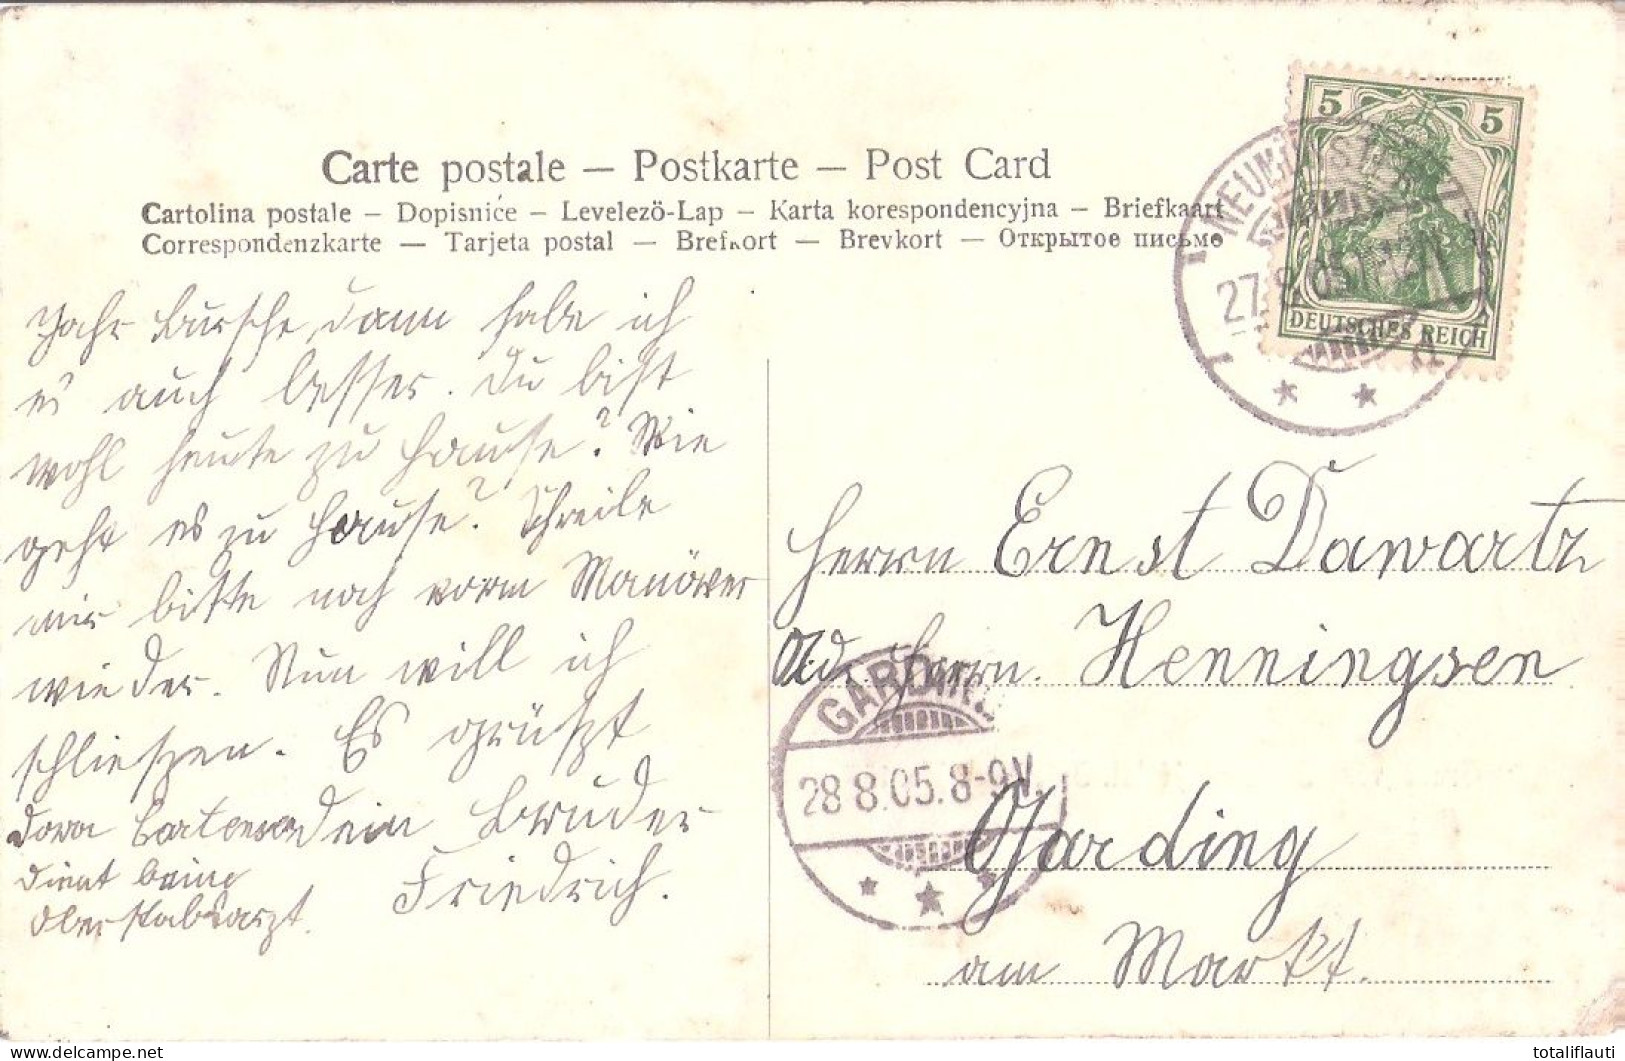 Carte postale – Postkarte – Post Card
Cartolina postale – Dopisnice – Levelezö-Lap – Karta korespondencyjna – Briefkaart
Correspondenzkarte — Tarjeta postal — Brefkort — Brevkort — Открытое письмо
5 5
DEUTSCHES REICH
27. 8.05
Jahr Bursche, dann habe ich
es auch besser. Du bist
wohl heute zu Hause? Wie
geht es zu Hause? Schreibe
mir bitte noch vorm Manöver
wieder. Nun will ich
schließen. Es grüßt
Dein Bruder
Friedrich.
Dora
dient beim
Oberstabsarzt.
Herrn Ernst Dawartz
Adr. Herrn. Henningsen
Garding
am Markt.
GARDING
28 8.05.8-9V.
totaliflauti